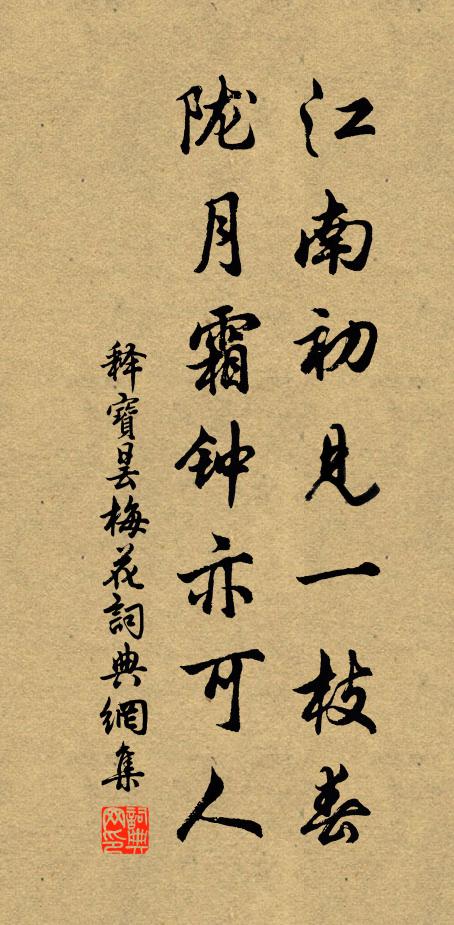 江南初见一枝春
陇月霜钟亦可人
释寶昙梅花詞典網集
詞典网印